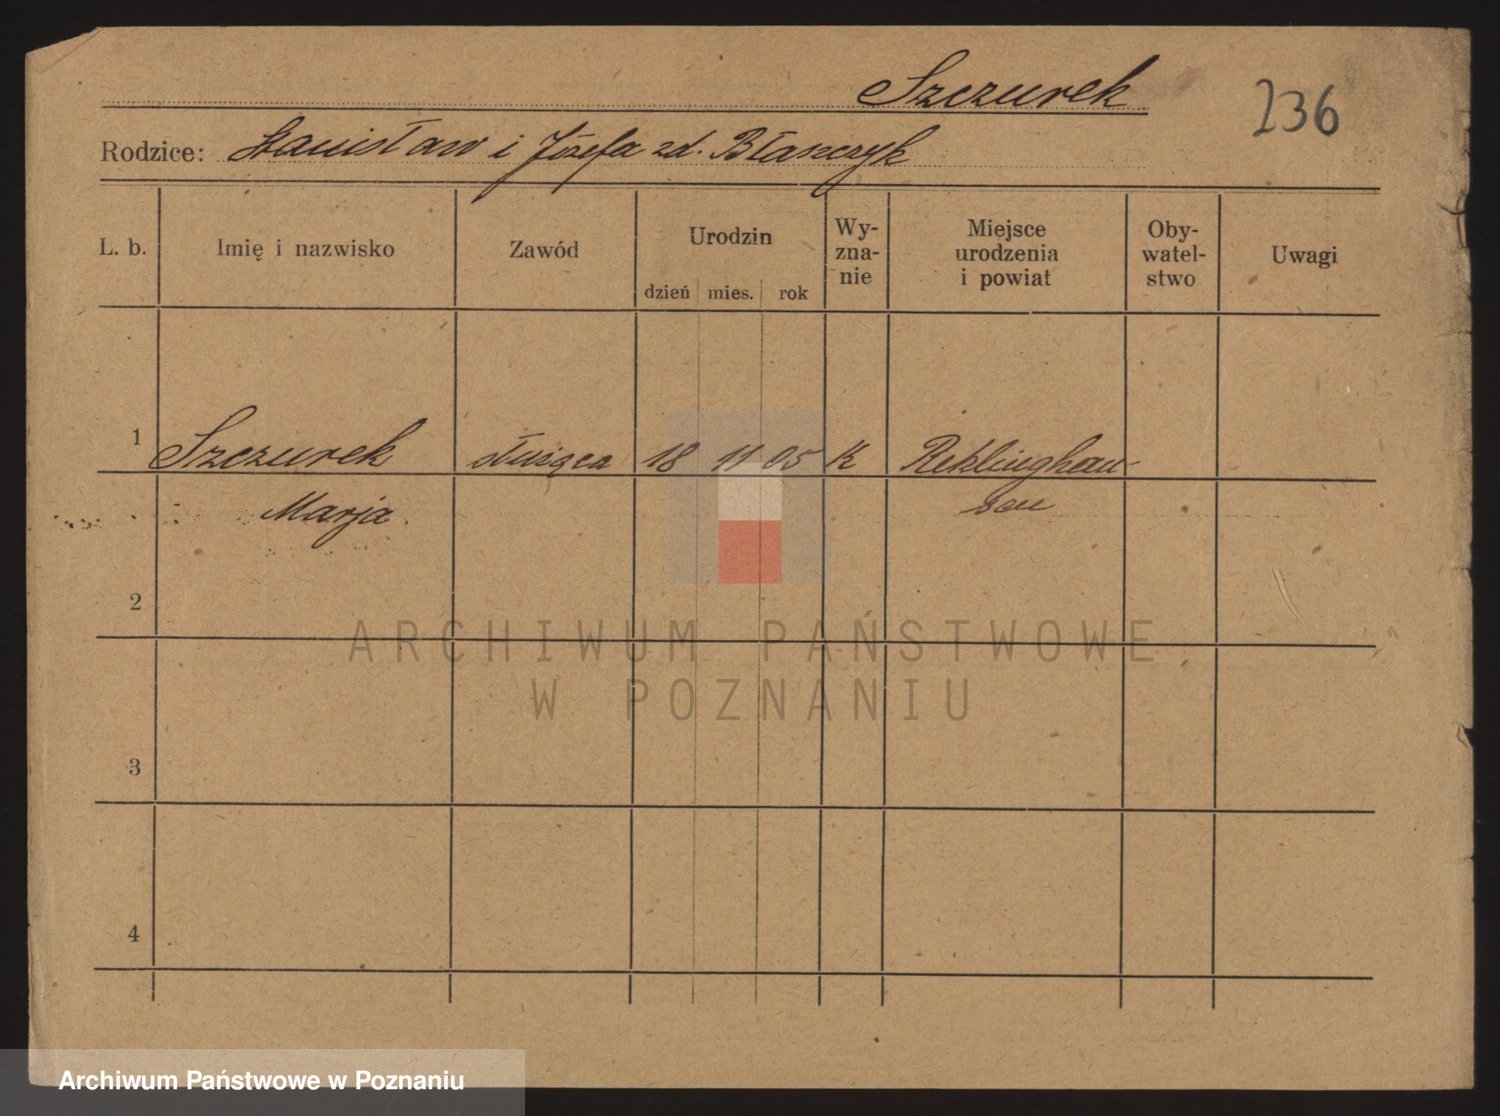 Szczurek
236
Rodzice: Stanisław i Józefa zd. Błaszczyk
L. b. Imię i nazwisko Zawód Urodzin dzień mies. rok Wy-
zna-
nie Miejsce
urodzenia
i powiat Oby-
watel-
stwo Uwagi
1 Szczurek służąca 18 11 05 K Reklinghau-
Marja sen
2
3
4
ARCHIWUM PAŃSTWOWE
W POZNANIU
Archiwum Państwowe w Poznaniu